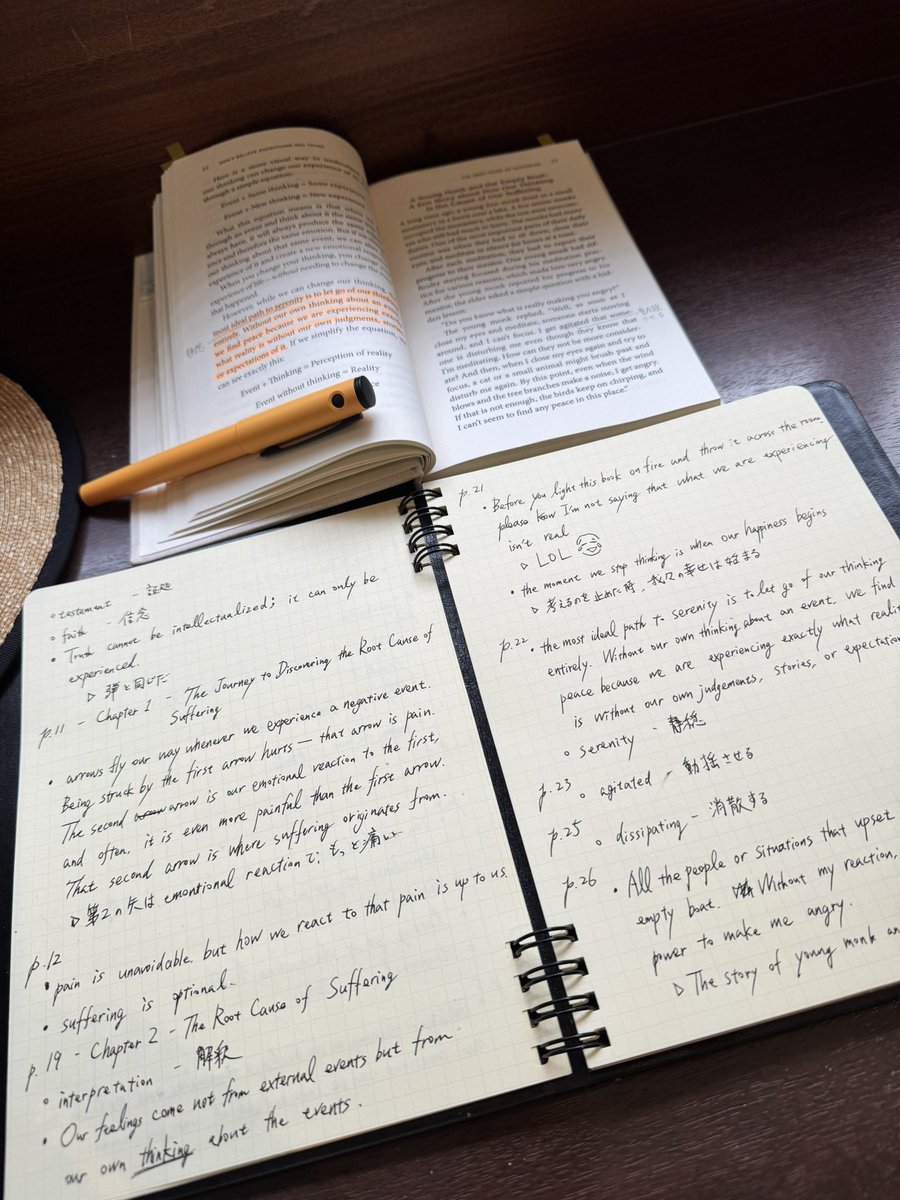 22 DON'T BELIEVE EVERYTHING YOU THINK
Here is a more visual way to understand
our thinking can change our experience of
through a simple equation:
Event + Same thinking = Same experience
Event + New thinking = New experience
What this equation means is that when
through an event and think about it the same
always have, it will always produce the same
ence and therefore the same emotion. But if
our thinking about that same event, we can
experience of it and create a new emotional
When you change your thinking, you change
experience of life—without needing to change the
that happened.
However, while we can change our thinking,
most ideal path to serenity is to let go of our thinking
entirely. Without our own thinking about an event,
we find peace because we are experiencing
what reality is without our own judgments, stories,
or expectations of it. If we simplify the equation, we
can see exactly this:
Event + Thinking = Perception of reality
Event without thinking = Reality
A Young Monk and the Empty Boat:
A Zen Story about How Our Thinking
Is the Cause of Our Suffering
A long time ago, a young Zen monk lived in a small
monastery
eyes, and meditate in silence for hours at a time.
After each meditation, they had to report their
progress to their mentor. Our young monk had dif-
ficulty staying focused during his meditation prac-
tice for various reasons, which made him very angry.
After the young monk reported his progress to his
mentor, the elder asked a simple question with a hid-
den lesson:
"Do you know what is really making you angry?"
The young monk replied, "Well, as soon as I
close my eyes and meditate, someone starts moving
around, and I can't focus. I get agitated that some-
one is disturbing me even though they know that
I'm meditating. How can they not be more consider-
ate? And then, when I close my eyes again and try to
focus, a cat or a small animal might brush past and
disturb me again. By this point, even when the wind
blows and the tree branches make a noise, I get angry.
If that is not enough, the birds keep on chirping, and
I can't seem to find any peace in this place"
testament - 証拠
faith - 信念
Truth cannot be intellectualized; it can only be
experienced.
▷ 弾と同じだ
p.11 - Chapter 1 - The Journey to Discovering the Root Cause of
Suffering
arrows fly our way whenever we experience a negative event.
Being struck by the first arrow hurts — that arrow is pain.
The second arrow is our emotional reaction to the first,
and often, it is even more painful than the first arrow.
That second arrow is where suffering originates from.
▷ 第2の矢は emontional reaction で、もっと痛い
p.12
pain is unavoidable, but how we react to that pain is up to us.
suffering is optional.
p.19 - Chapter 2 - The Root Cause of Suffering
interpretation - 解釈
Our feelings come not from external events but from
our own thinking about the events.
p.21
Before you light this book on fire and throw it across the room
please know I'm not saying that what we are experiencing
isn't real
▷ LOL
the moment we stop thinking is when our happiness begins
▷ 考えるのを止めた時、我々の幸せは始まる
p.22 the most ideal path to serenity is to let go of our thinking
entirely. Without our own thinking about an event, we find
peace because we are experiencing exactly what reality
is without our own judgements, stories, or expectation
serenity - 静穏
p.23 agitated - 動揺させる
p.25 dissipating - 消散する
p.26 All the people or situations that upset
empty boat. Without my reaction,
power to make me angry.
▷ The story of young monk an